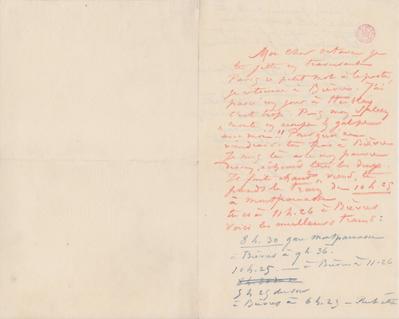 Mon cher Octave je
te jette en traversant
Paris ce petit mot à la poste,
je retourne à Bièvres. J'ai
passé un jour à
c'est trop. Paris mon
monte en croupe & galope
avec moi !! Pourquoi ne
viendrais-tu pas à Bièvres
Je suis là avec ma pauvre
tous les deux.
Il fait chaud, viens,
prends le train de 10h 25
à montparnasse
tu es à 11h.26 à Bièvres
voici les meilleurs trains :
8h. 30 gare montparnasse
à Bièvres à 9h 36.
10h.25 — à Bièvres 11-26
5h 25 du soir
à Bièvres à 6h.29 —